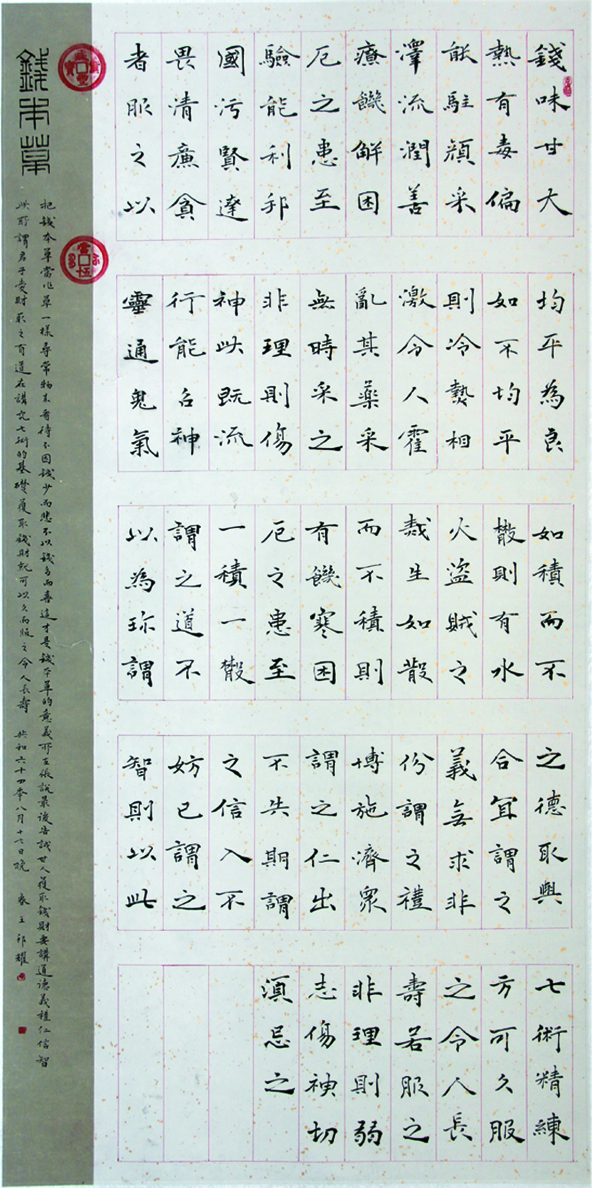 錢味甘大
熱有毒偏
能駐顏采
澤流潤善
療饑解困
厄之患至
驗能利邦
國污賢達
畏清廉貪
者服之以
均平為良
如不均平
則冷熱相
激令人霍
亂其藥采
無時采之
非理則傷
神此既流
行能召神
靈通鬼氣
如積而不
散則有水
火盜賊之
烖生如散
而不積則
有饑寒困
厄之患至
一積一散
謂之道不
以為珍謂
之德取與
合宜謂之
義無求非
份謂之禮
博施濟衆
謂之仁出
不失期謂
之信入不
妨己謂之
智則以此
七術精練
方可久服
之令人長
壽若服之
非理則弱
志傷神切
須忌之
錢本草
把錢本草當作草一樣尋常物來看待不因錢少而悲不以錢多而喜這才是錢本草的意義所在張說最後告誡世人獲取錢財要講道德義禮仁信智
此所謂君子愛財取之有道在講究七術的基礎獲取錢財就可以久而服之令人長壽 共和六十四年八月十七日晚